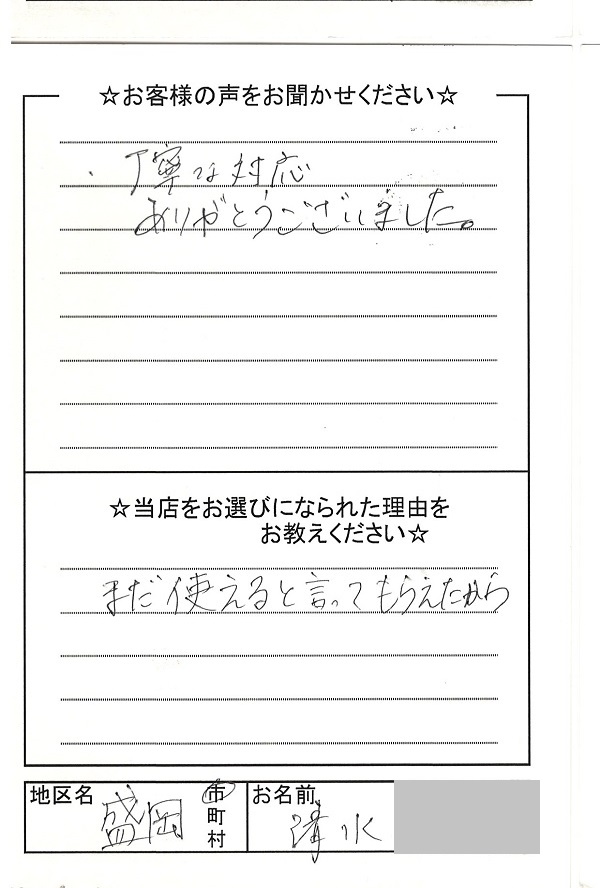 ☆お客様の声をお聞かせください☆
・丁寧な対応
ありがとうございました。
☆当店をお選びになられた理由を
お教えください☆
まだ使えると言ってもらえたから
地区名 盛岡 市町村 お名前 清水